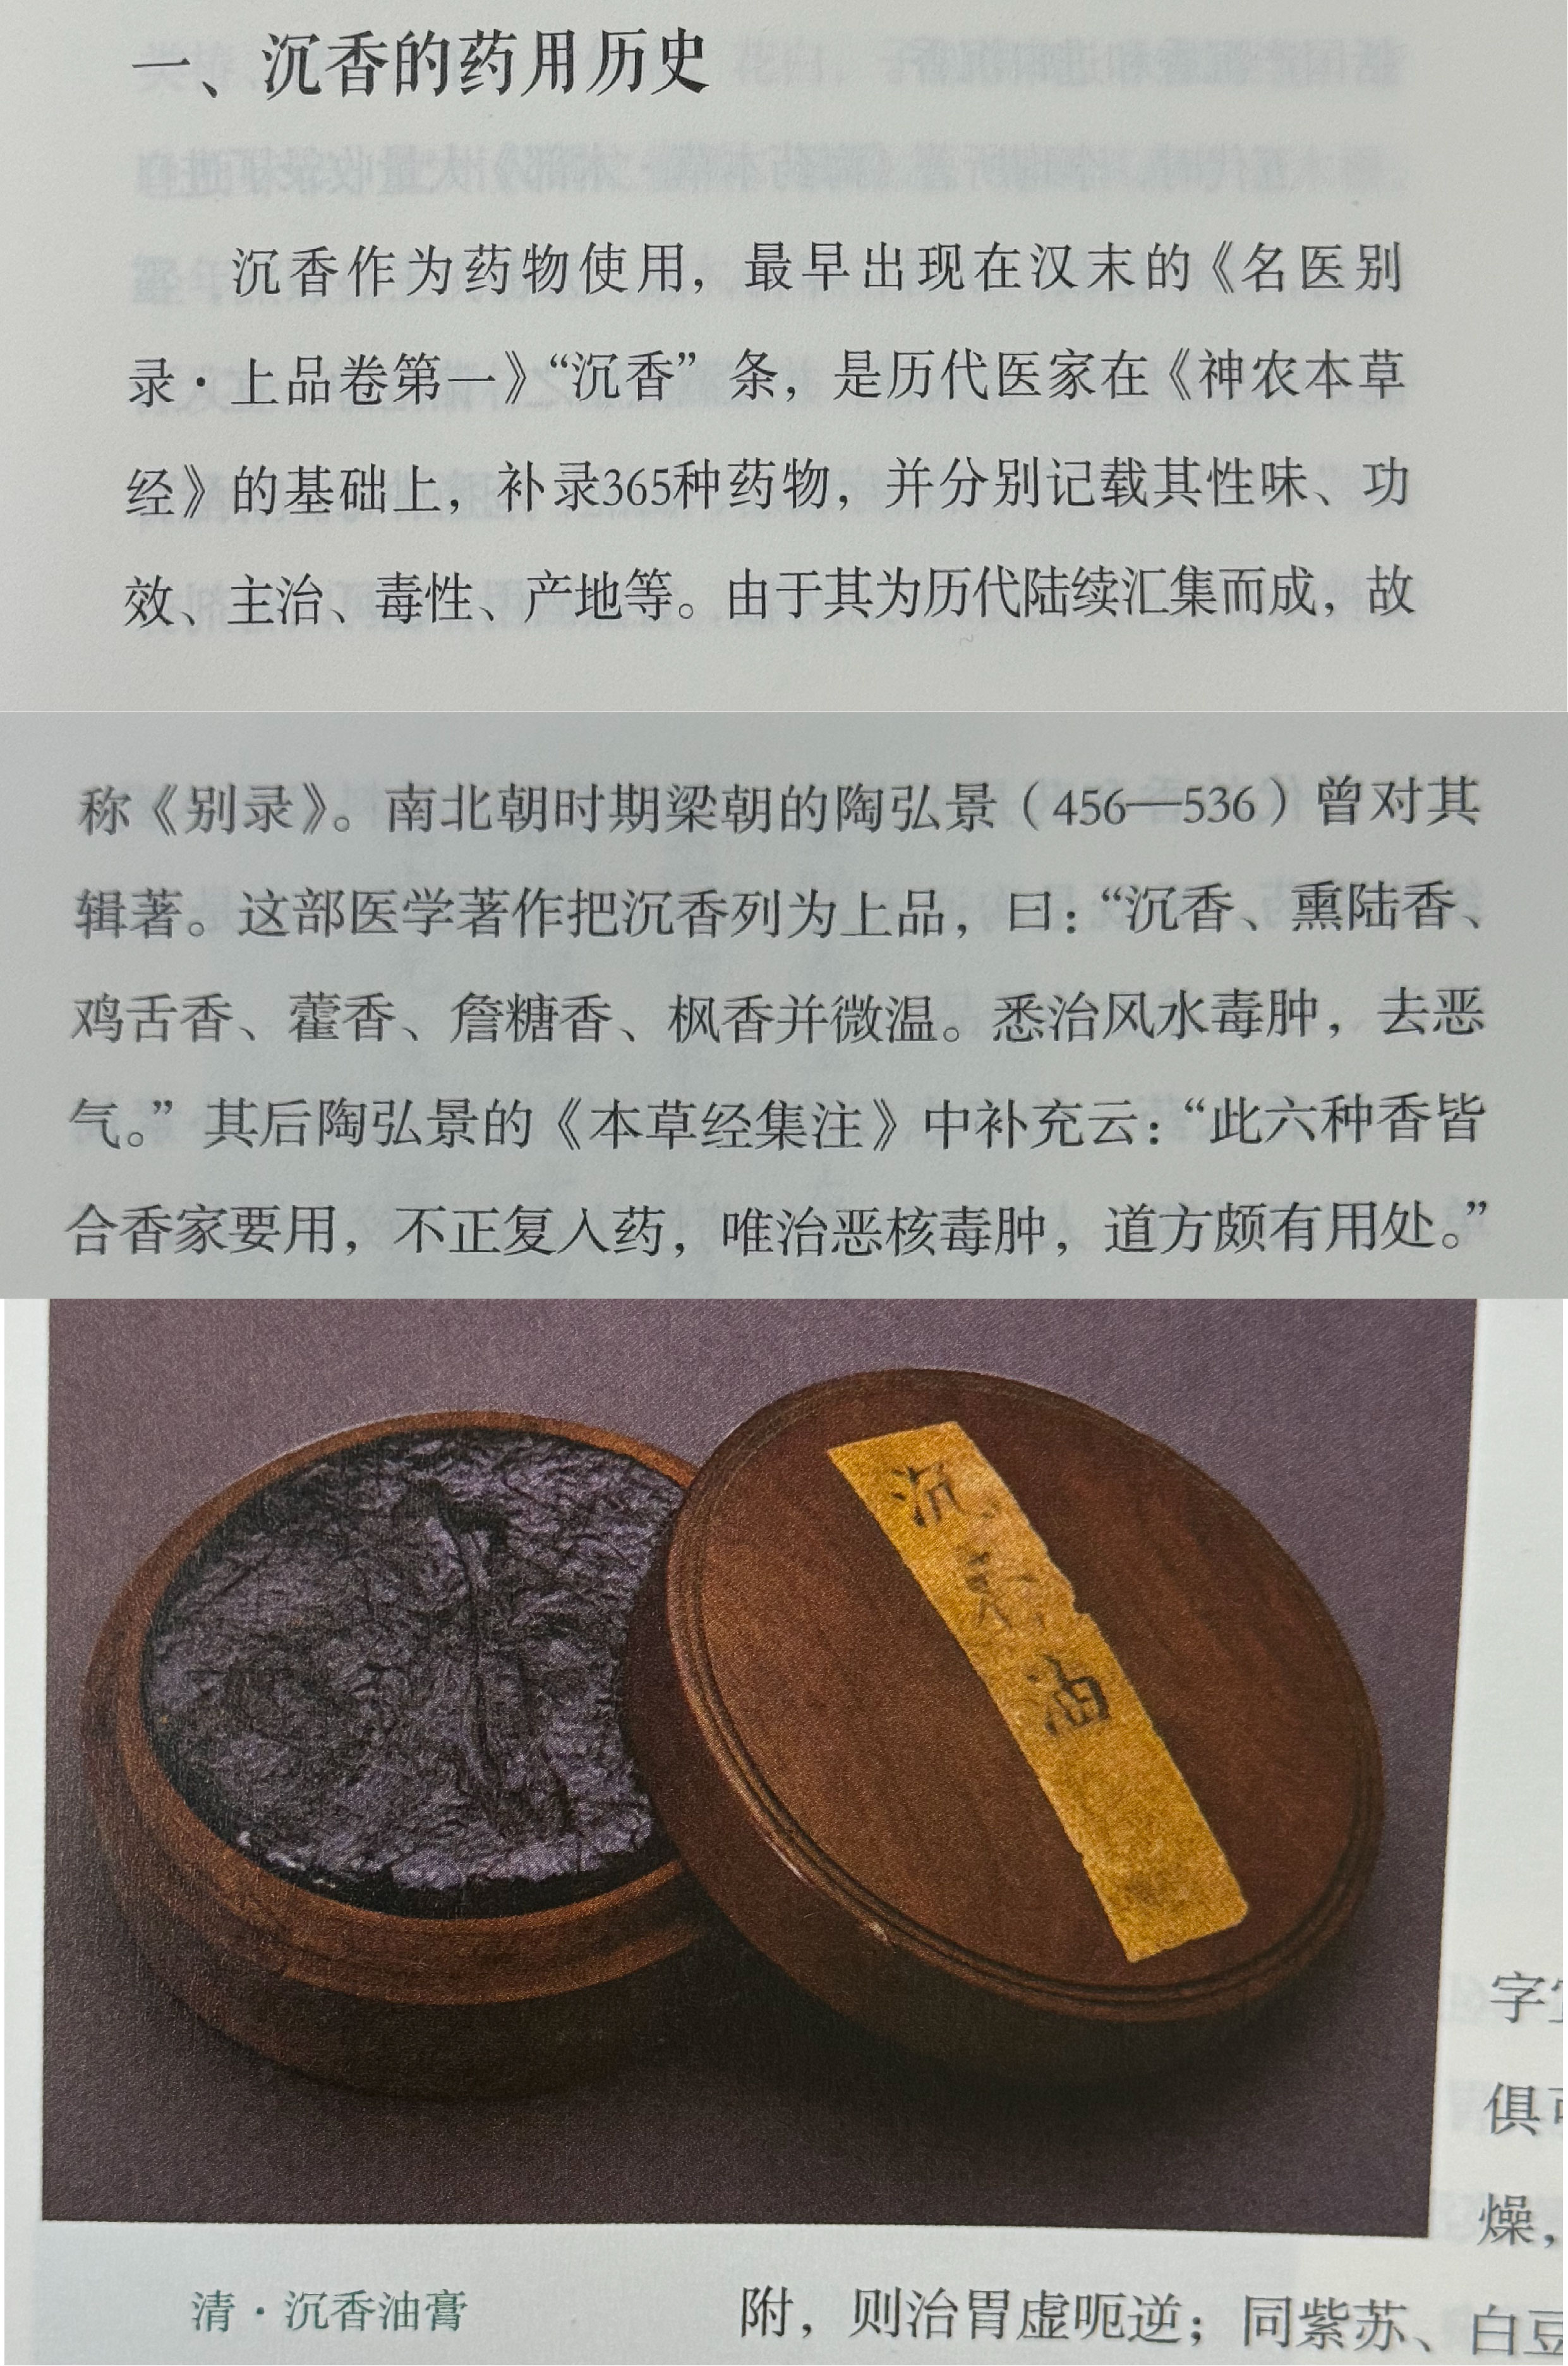 一、沉香的药用历史
沉香作为药物使用，最早出现在汉末的《名医别
录·上品卷第一》“沉香”条，是历代医家在《神农本草
经》的基础上，补录365种药物，并分别记载其性味、功
效、主治、毒性、产地等。由于其为历代陆续汇集而成，故
称《别录》。南北朝时期梁朝的陶弘景（456—536）曾对其
辑著。这部医学著作把沉香列为上品，曰：“沉香、熏陆香、
鸡舌香、藿香、詹糖香、枫香并微温。悉治风水毒肿，去恶
气。”其后陶弘景的《本草经集注》中补充云：“此六种香皆
合香家要用，不正复入药，唯治恶核毒肿，道方颇有用处。”
沉
油
字
俱
燥，
清·沉香油膏
附，则治胃虚呃逆；同紫苏、白豆